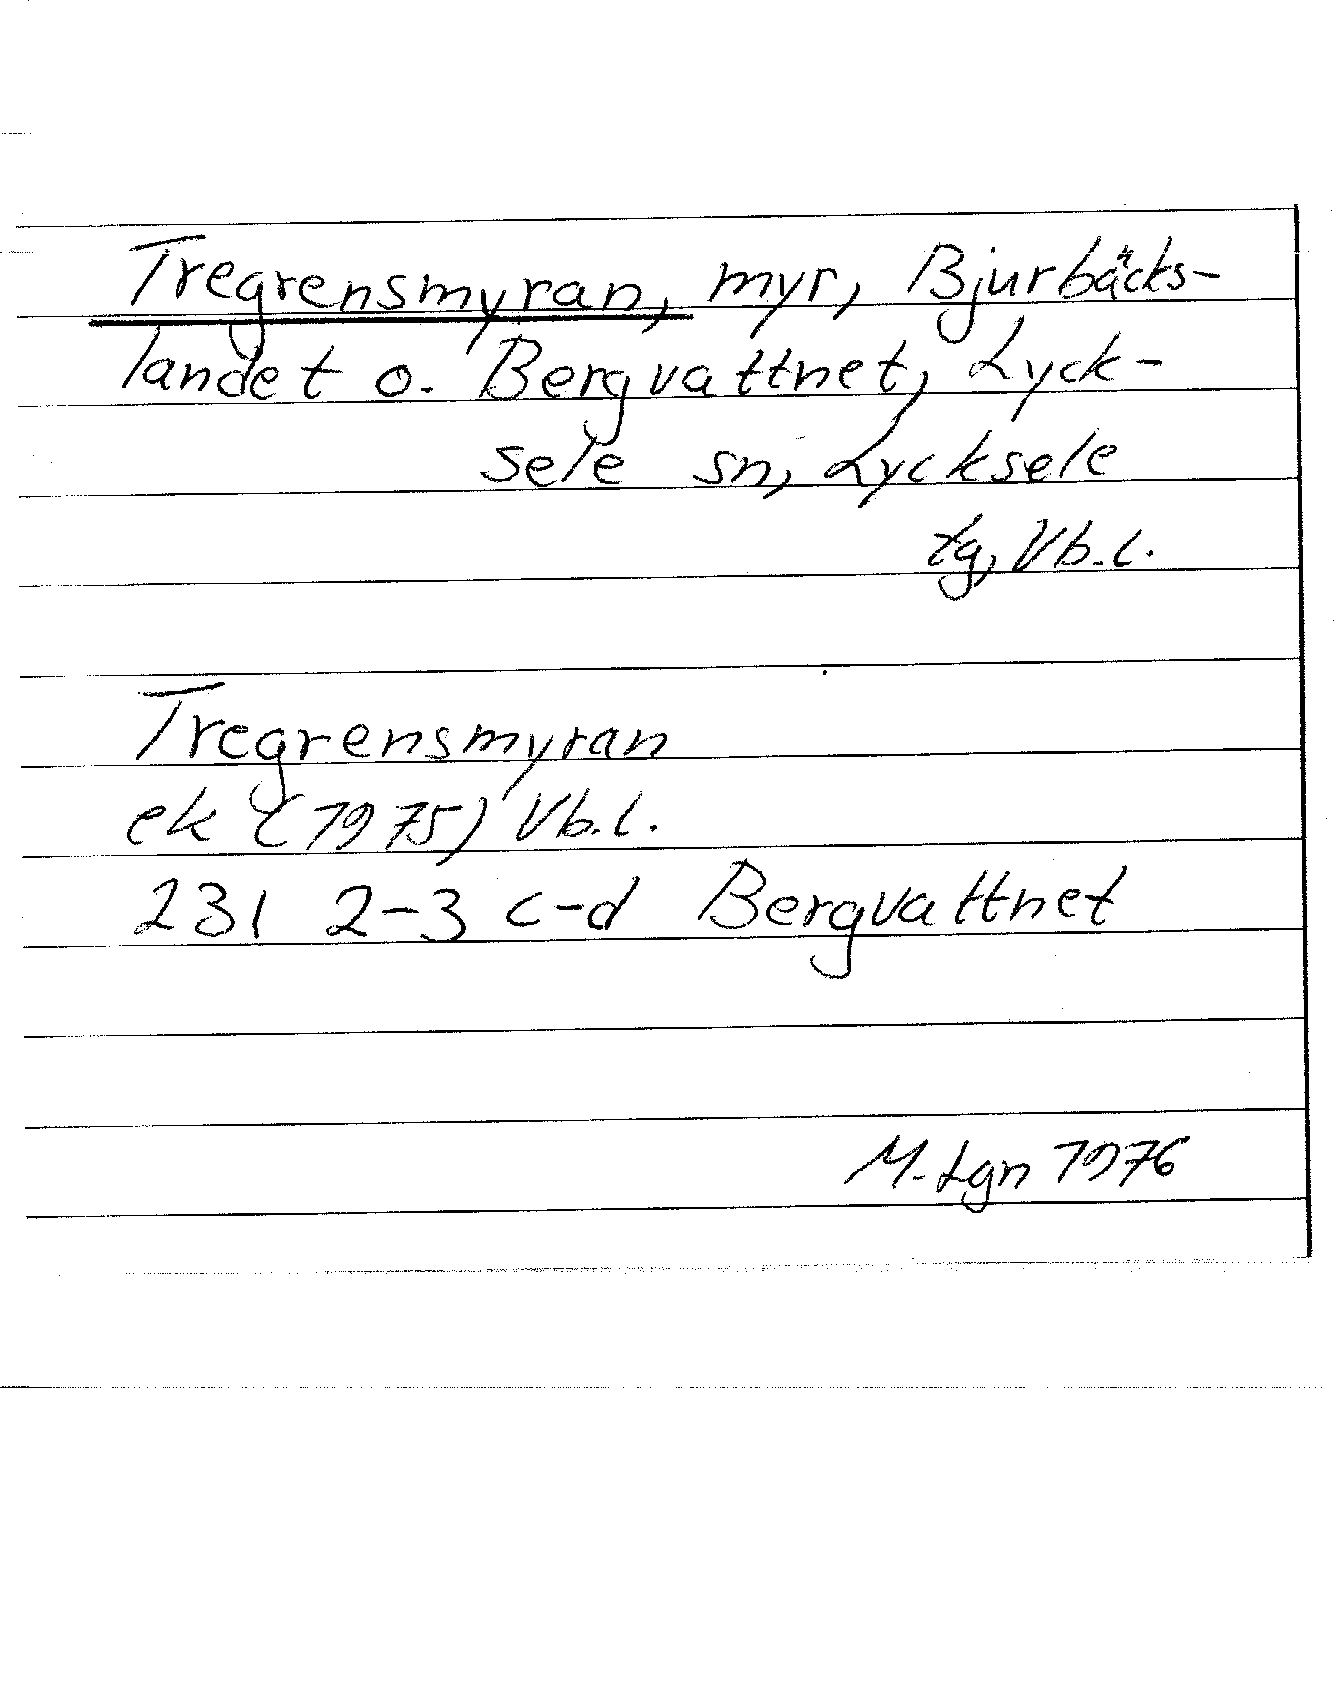 Tregrensmyran, myr, Bjurbäcks-
landet o. Bergvattnet, Lyck-
sele sn, Lycksele
tg, Vb.l.
Tregrensmyran
ek (1975) Vb.l.
23I 2-3 c-d Bergvattnet
M. Lgn 1976